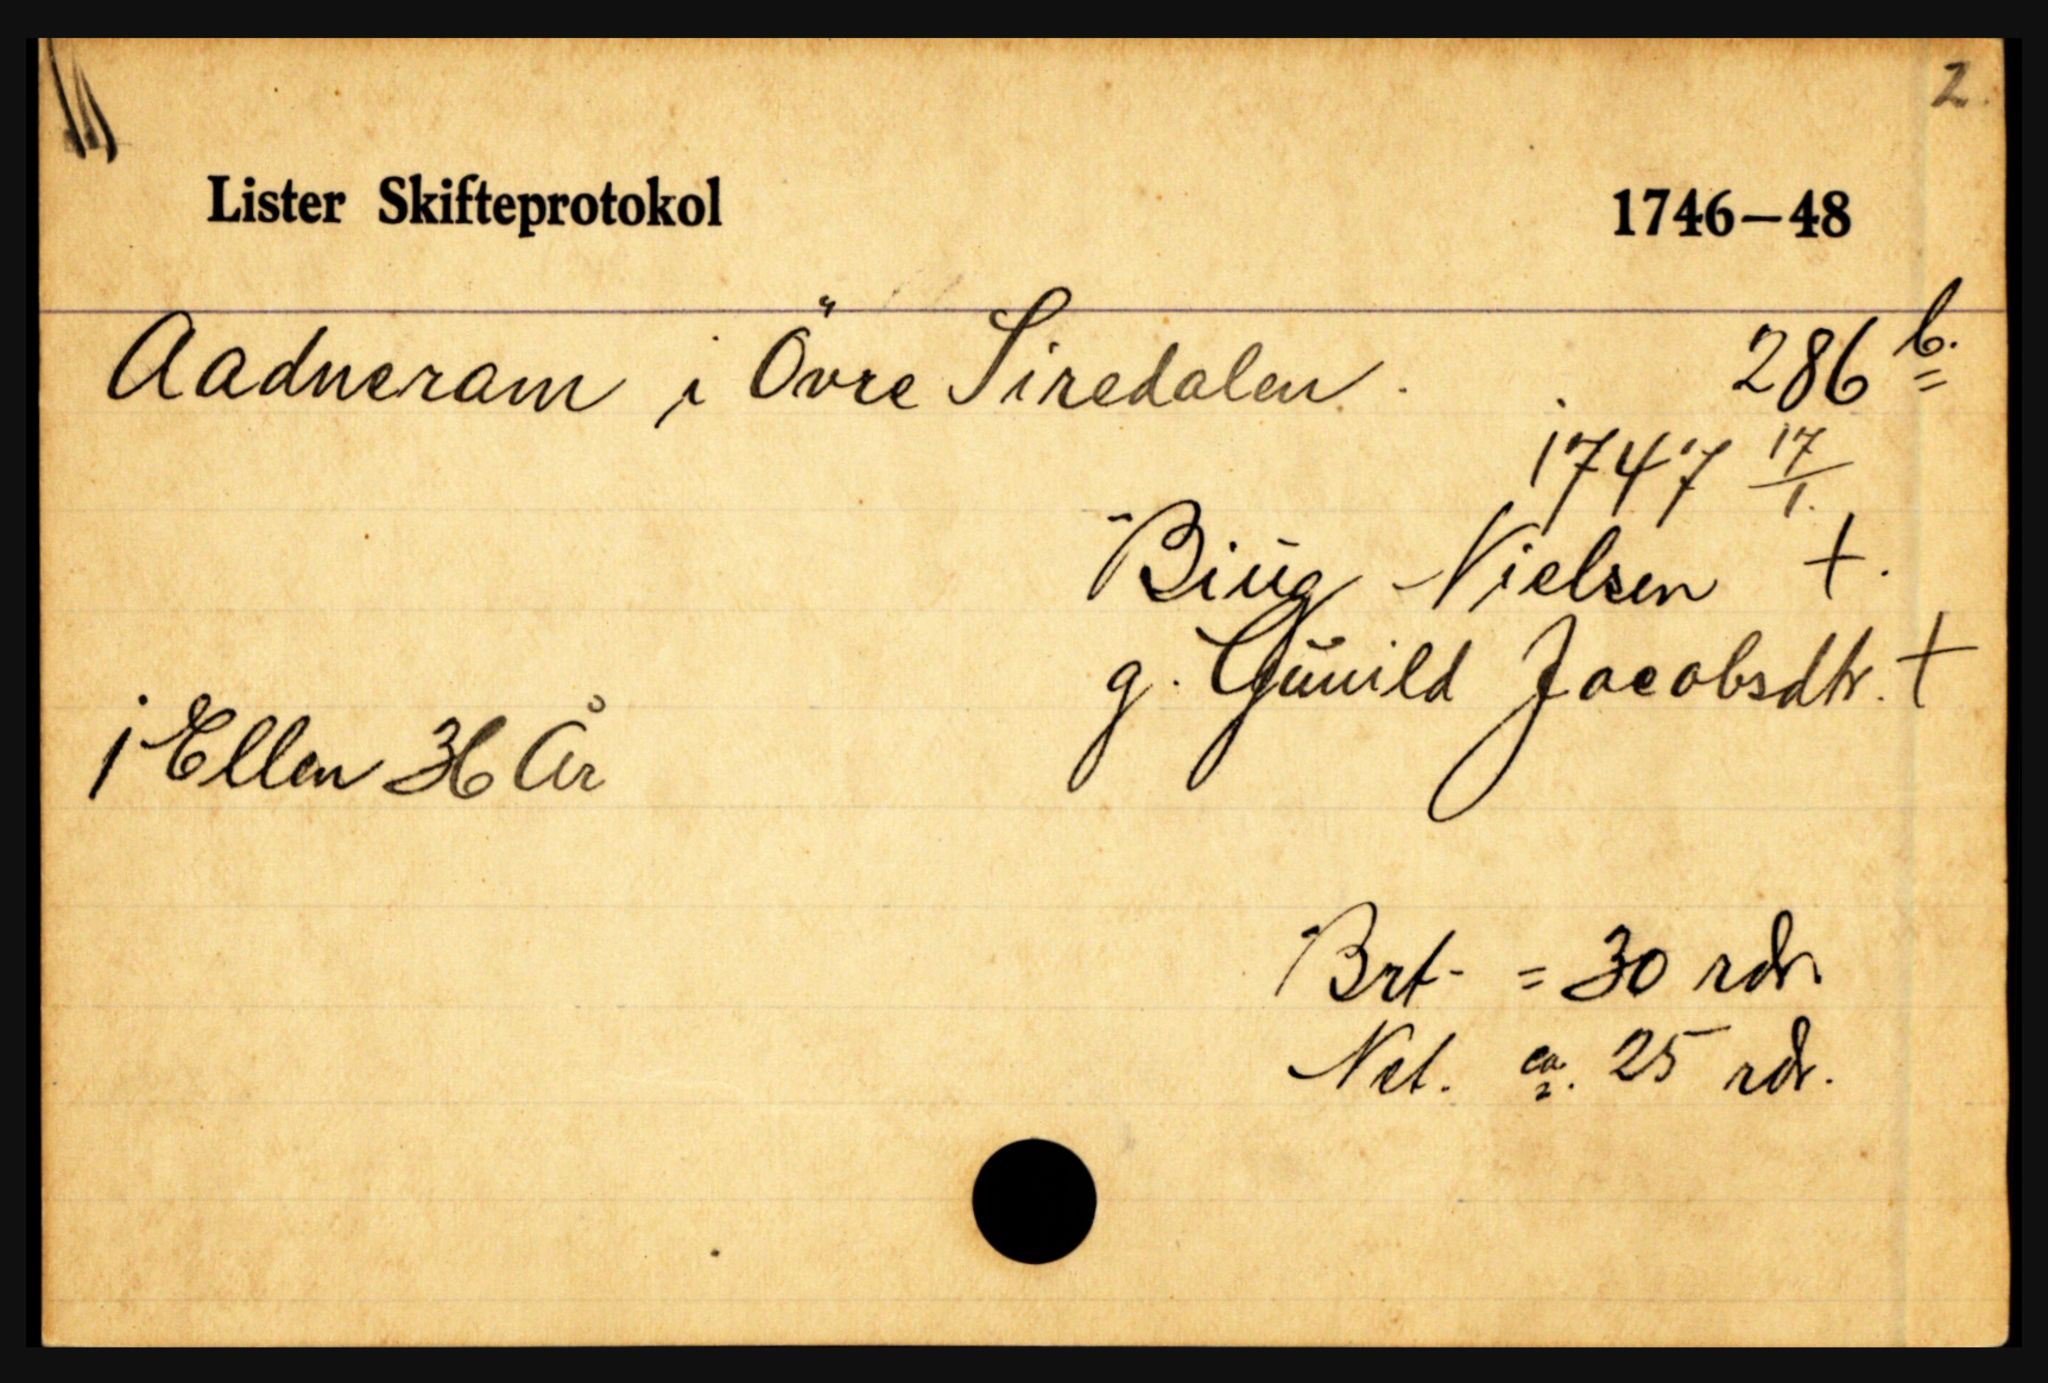 2.
Lister Skifteprotokol 1746–48
Aadneram i Övre Siredalen. 286 b.
1747 17/1.
Biug Nielsen +.
g. Gunild Jacobsdtr. +
1 Ellen 36 År
Brt. = 30 rdr.
Net. ca. 25 rdr.